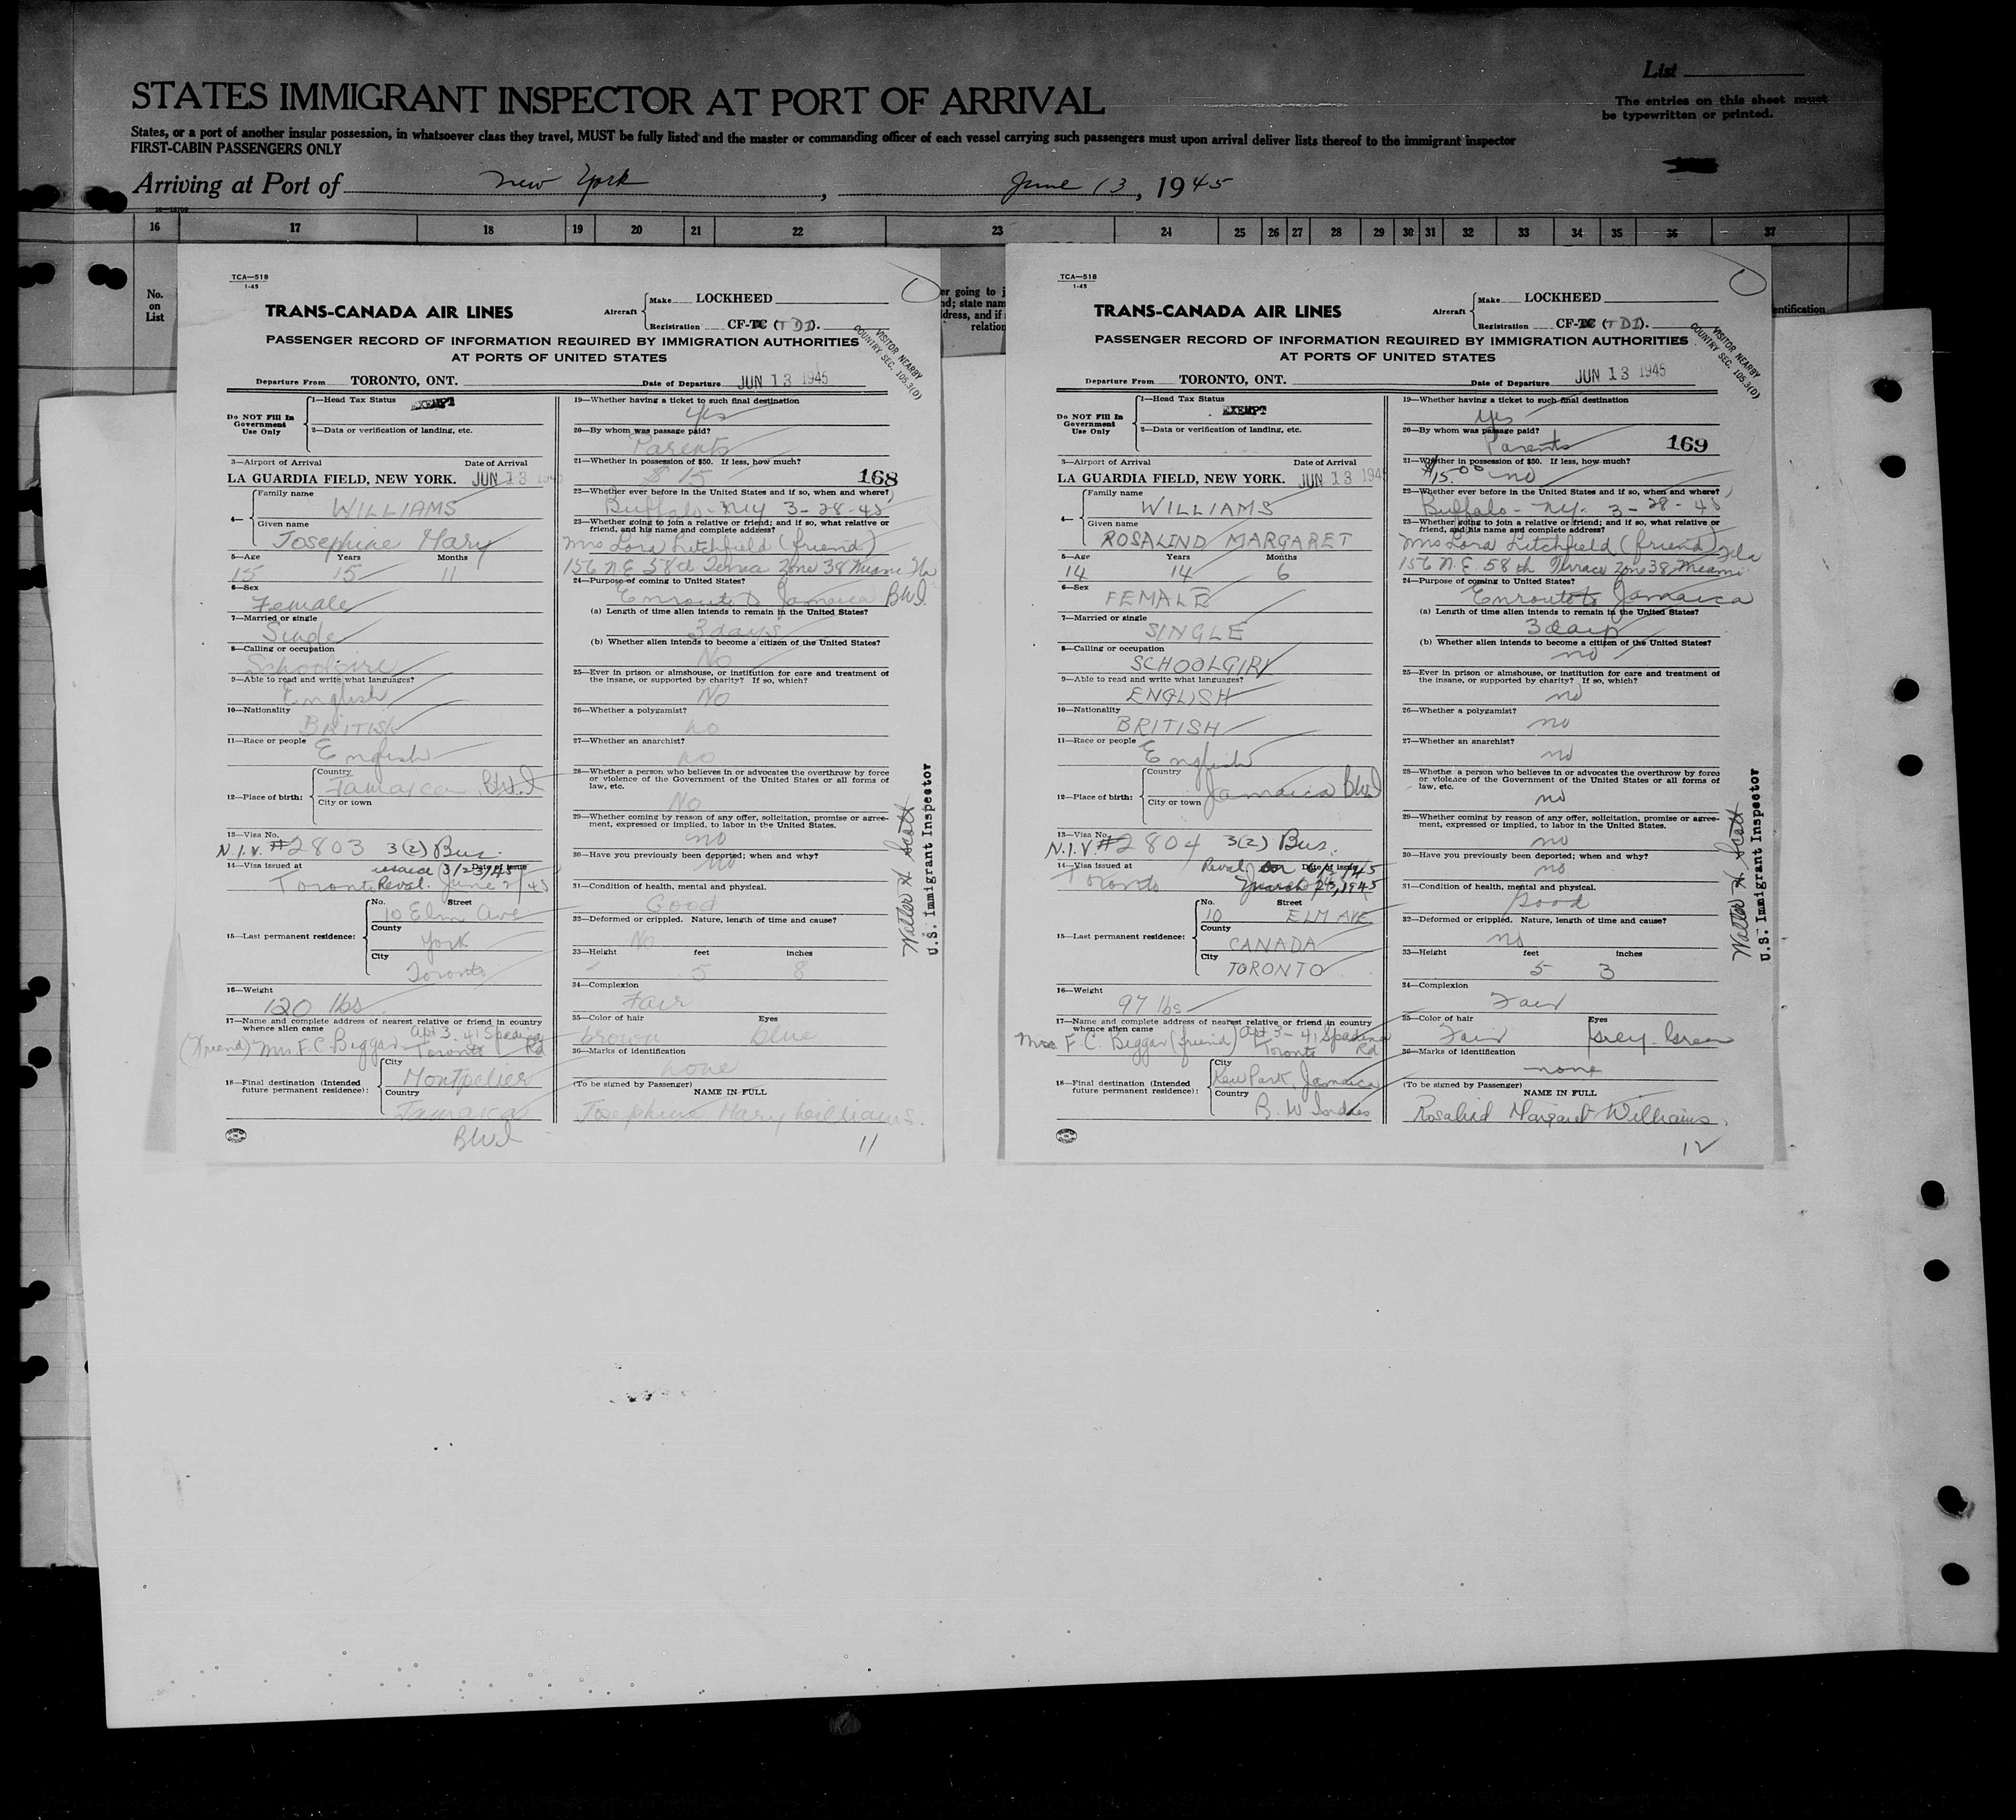 List
The entries on this sheet must
be typewritten or printed.
STATES IMMIGRANT INSPECTOR AT PORT OF ARRIVAL
States, or a port of another insular possession, in whatsoever class they travel, MUST be fully listed and the master or commanding officer of each vessel carrying such passengers must upon arrival deliver lists thereof to the immigrant inspector
FIRST-CABIN PASSENGERS ONLY
Arriving at Port of New York, June 13, 1945
16 17 18 19 20 21 22 23 24 25 26 27 28 29 30 31 32 33 34 35 36 37
No.
on
List
TCA—518
1-45
TRANS-CANADA AIR LINES
Aircraft
Make LOCKHEED
Registration CF-TC (TDI).
PASSENGER RECORD OF INFORMATION REQUIRED BY IMMIGRATION AUTHORITIES
AT PORTS OF UNITED STATES
VISITOR NEARBY
COUNTRY SEC. 105.3(D)
Departure From TORONTO, ONT. Date of Departure JUN 13 1945
Do NOT Fill In
Government
Use Only
1—Head Tax Status EXEMPT
2—Data or verification of landing, etc.
3—Airport of Arrival Date of Arrival
LA GUARDIA FIELD, NEW YORK. JUN 13 1945
4— Family name
WILLIAMS
Given name
Josephine Mary
5—Age Years Months
15 15 11
6—Sex
Female
7—Married or single
Single
8—Calling or occupation
Schoolgirl
9—Able to read and write what languages?
English
10—Nationality
BRITISH
11—Race or people
English
12—Place of birth: Country
Jamaica B.W.I
City or town
13—Visa No.
N.I.V. #2803 3(2) Bus.
14—Visa issued at Date of issue
issued 3/23/45
Toronto Reval. June 2/45
15—Last permanent residence:
No. Street
10 Elm Ave
County
York
City
Toronto
16—Weight
120 lbs
17—Name and complete address of nearest relative or friend in country
whence alien came
Apt 3. 41 Spadina Rd
(Friend) Mrs. F.C. Beggar Toronto
18—Final destination (Intended
future permanent residence):
City
Montpelier
Country
Jamaica
BWI
19—Whether having a ticket to such final destination
Yes
20—By whom was passage paid?
Parents
21—Whether in possession of $50. If less, how much?
$ 15
168
22—Whether ever before in the United States and if so, when and where?
Buffalo - NY 3-28-45
23—Whether going to join a relative or friend; and if so, what relative or
friend, and his name and complete address?
Mrs Lora Litchfield (friend)
156 N.E. 58th Terrace Zone 38 Miami Fla
24—Purpose of coming to United States?
Enroute to Jamaica BWI.
(a) Length of time alien intends to remain in the United States?
3 days
(b) Whether alien intends to become a citizen of the United States?
No
25—Ever in prison or almshouse, or institution for care and treatment of
the insane, or supported by charity? If so, which?
NO
26—Whether a polygamist?
no
27—Whether an anarchist?
no
28—Whether a person who believes in or advocates the overthrow by force
or violence of the Government of the United States or all forms of
law, etc.
No
29—Whether coming by reason of any offer, solicitation, promise or agree-
ment, expressed or implied, to labor in the United States.
no
30—Have you previously been deported; when and why?
no
31—Condition of health, mental and physical.
Good
32—Deformed or crippled. Nature, length of time and cause?
No
33—Height feet inches
5 8
34—Complexion
Fair
35—Color of hair Eyes
brown blue
36—Marks of identification
none
(To be signed by Passenger) NAME IN FULL
Josephine Mary Williams.
11
Walter H. Scott
U.S. Immigrant Inspector
er going to j
nd; state nam
ddress, and if
relation
TCA—518
1-45
TRANS-CANADA AIR LINES
Aircraft
Make LOCKHEED
Registration CF-TC (TDI).
PASSENGER RECORD OF INFORMATION REQUIRED BY IMMIGRATION AUTHORITIES
AT PORTS OF UNITED STATES
VISITOR NEARBY
COUNTRY SEC. 105.3(D)
entification
Departure From TORONTO, ONT. Date of Departure JUN 13 1945
Do NOT Fill In
Government
Use Only
1—Head Tax Status
EXEMPT
2—Data or verification of landing, etc.
3—Airport of Arrival Date of Arrival
LA GUARDIA FIELD, NEW YORK. JUN 13 1945
4— Family name
WILLIAMS
Given name
ROSALIND MARGARET
5—Age Years Months
14 14 6
6—Sex
FEMALE
7—Married or single
SINGLE
8—Calling or occupation
SCHOOLGIRL
9—Able to read and write what languages?
ENGLISH
10—Nationality
BRITISH
11—Race or people
English
12—Place of birth: Country
City or town
Jamaica BWI
13—Visa No.
N.I.V. #2804 3(2) Bus.
14—Visa issued at Date of issue
Reval.
Toronto March 23, 1945
15—Last permanent residence:
No. Street
10 ELM AVE
County
CANADA
City
TORONTO
16—Weight
97 lbs
17—Name and complete address of nearest relative or friend in country
whence alien came
Apt 3 - 41 Spadina Rd
Mrs. F. C. Beggar (friend) Toronto
18—Final destination (Intended
future permanent residence):
City
Kew Park, Jamaica
Country
B. W Indies
19—Whether having a ticket to such final destination
yes
20—By whom was passage paid?
Parents
169
21—Whether in possession of $50. If less, how much?
$15.00 no
22—Whether ever before in the United States and if so, when and where?
Buffalo - NY. 3-28-45
23—Whether going to join a relative or friend; and if so, what relative or
friend, and his name and complete address?
Mrs Lora Litchfield (friend) Fla
156 N.E. 58th Terrace Zone 38 Miami
24—Purpose of coming to United States?
Enroute to Jamaica
(a) Length of time alien intends to remain in the United States?
3 days
(b) Whether alien intends to become a citizen of the United States?
no
25—Ever in prison or almshouse, or institution for care and treatment of
the insane, or supported by charity? If so, which?
no
26—Whether a polygamist?
no
27—Whether an anarchist?
no
28—Whether a person who believes in or advocates the overthrow by force
or violence of the Government of the United States or all forms of
law, etc.
no
29—Whether coming by reason of any offer, solicitation, promise or agree-
ment, expressed or implied, to labor in the United States.
no
30—Have you previously been deported; when and why?
no
31—Condition of health, mental and physical.
Good
32—Deformed or crippled. Nature, length of time and cause?
no
33—Height feet inches
5 3
34—Complexion
Fair
35—Color of hair Eyes
Fair Grey-Green
36—Marks of identification
none
(To be signed by Passenger) NAME IN FULL
Rosalind Margaret Williams.
12
Walter H. Scott
U.S. Immigrant Inspector